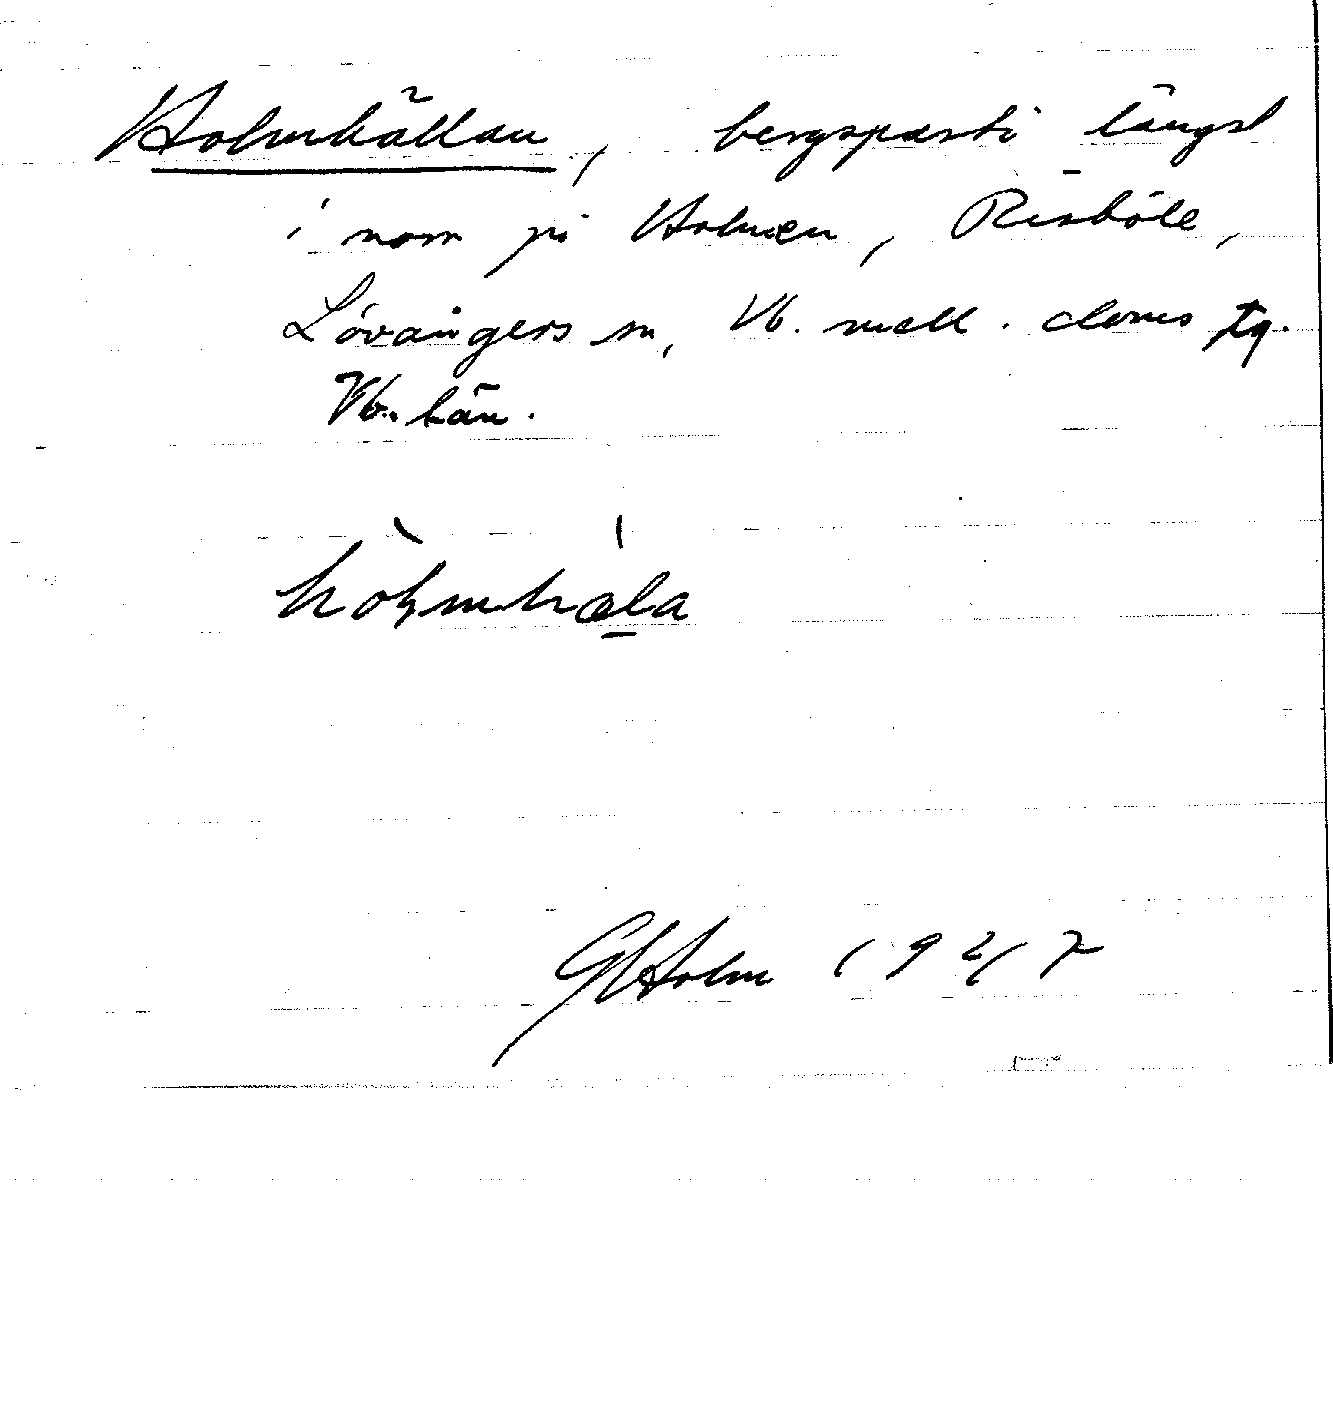 Holmhällan, bergsparti längst
i norr på Holmen, Risböle,
Lövångers sn, Vb. mell. doms tg.
Vb. län.
hòlmhæla
GHolm 1947